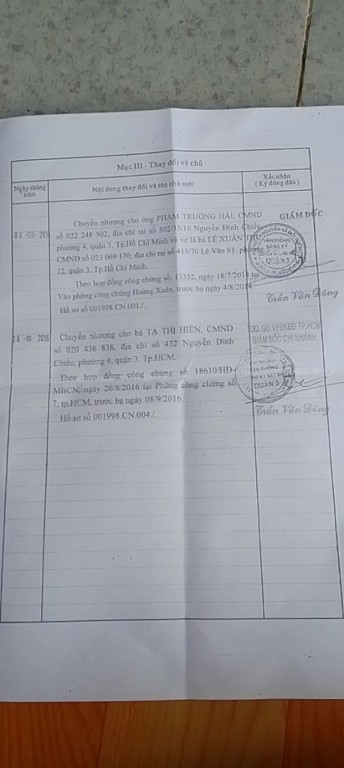 Mục III - Thay đổi về chủ
Ngày tháng năm
Nội dung thay đổi và tên chủ mới
Xác nhận
(Ký đóng dấu)
Chuyển nhượng cho ông PHẠM TRƯỜNG HẢI, CMND
số 022 248 502, địa chỉ tại số 502/35/10 Nguyễn Đình Chiểu,
phường 4, quận 3, Tp.Hồ Chí Minh và vợ là bà LÊ XUÂN
số 023 069 170, địa chỉ tại số 413/70 Lê Văn Sỹ, phường
12, quận 3, Tp.Hồ Chí Minh.
Theo hợp đồng công chứng số: 13352, ngày 18/7/2014 tại
Văn phòng công chứng Hoàng Xuân, trước bạ ngày 4/8/2014
Hồ sơ số 001998.CN.001./.
GIÁM ĐỐC
QUẬN 3
Trần Văn Đông
-10-2016
Chuyển nhượng cho bà TẠ THỊ HIỀN, CMND
số 020 436 836, địa chỉ số 432 Nguyễn Đình
Chiểu, phường 4, quận 3, Tp.HCM.
Theo hợp đồng công chứng số 18610/HĐ-
MBCN, ngày 26/8/2016 tại Phòng công chứng số
7, tp.HCM, trước bạ ngày 08/9/2016.
Hồ sơ số 001998.CN.004./.
TUQ. GĐ VPĐKĐĐ TP.HCM
GIÁM ĐỐC CHI NHÁNH
QUẬN 3
Trần Văn Đông